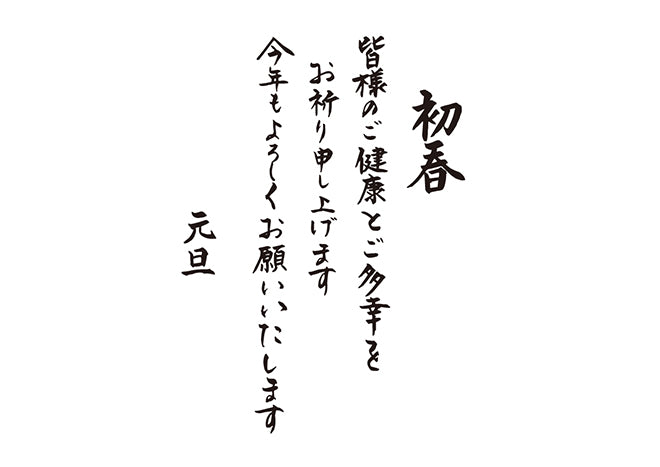 初春
皆様のご健康とご多幸を
お祈り申し上げます
今年もよろしくお願いいたします
元旦